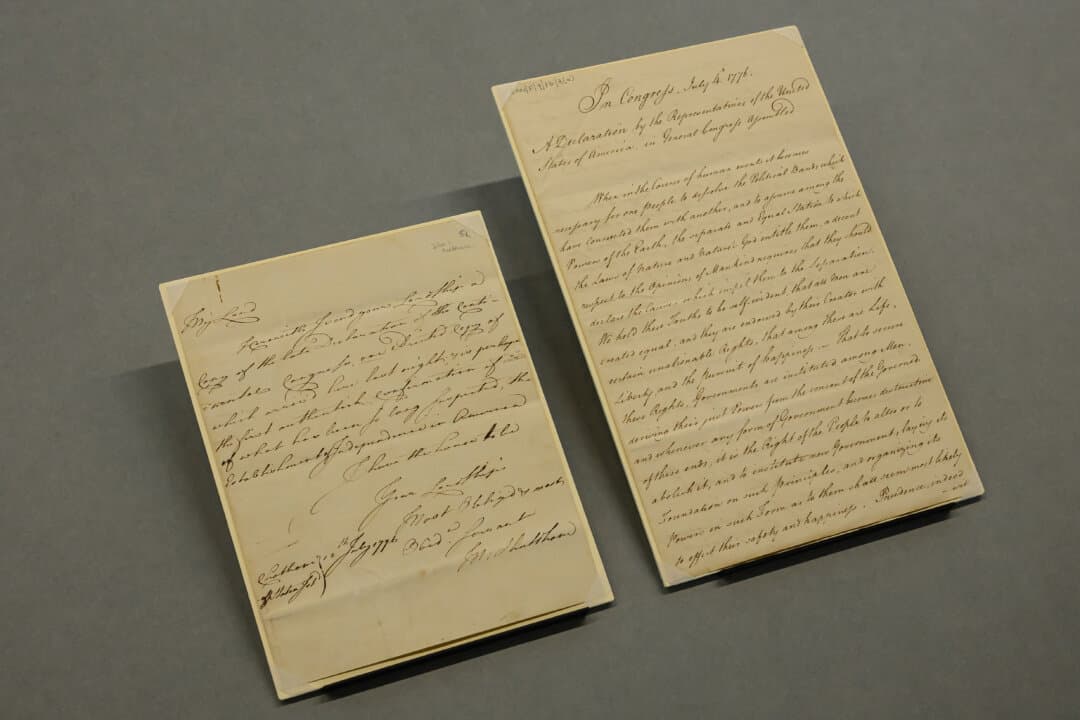 My Lord
Herewith I send your Lordship a
Copy of the late Declaration of the Conti-
nental Congress, one Printed Copy of
which arrived here last night, & is perhaps
the first authentick confirmation of
of what has been so long suspected, the
Establishment of Independence in America
I have the honor to be
Your Lordship's
Most Obliged & most
Obed.t Servant
July 1776
In Congress, July 4.th 1776.
A Declaration by the Representatives of the United
States of America, in General Congress Assembled
When in the Course of human events it becomes
necessary for one People to dissolve the Political Bands which
have connected them with another, and to assume among the
Powers of the Earth, the separate and Equal Station to which
the Laws of Nature and Nature's God entitle them, a decent
respect to the Opinions of Mankind requires that they should
declare the Causes which impel them to the Separation.
We hold these Truths to be self evident, that all Men are
created equal, and they are endowed by their Creator with
certain unalienable Rights, that among these are Life,
Liberty, and the Pursuit of happiness — That to secure
these Rights, Governments are instituted among Men,
deriving their just Powers from the consent of the Governed
and whenever any form of Government becomes destructive
of these ends, it is the Right of the People to alter or to
abolish it, and to institute new Government, laying its
Foundation on such Principles, and organizing its
Powers in such Form as to them shall seem most likely
to effect their safety and happiness. Prudence, indeed